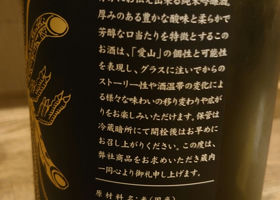 厚みのある豊かな酸味と柔らかで
芳醇な口当たりを特徴とするこの
お酒は、「愛山」の個性と可能性
を表現し、グラスに注いでからの
ストーリー性や酒温帯の変化に
よる様々な味わいの移り変わりや広が
りをお楽しみいただけます。保管は
冷蔵暗所にて開栓後はお早めに
お召し上がりください。この度は、
弊社商品をお求めいただき蔵内
一同心より御礼申し上げます。
原材料名:米(国産)